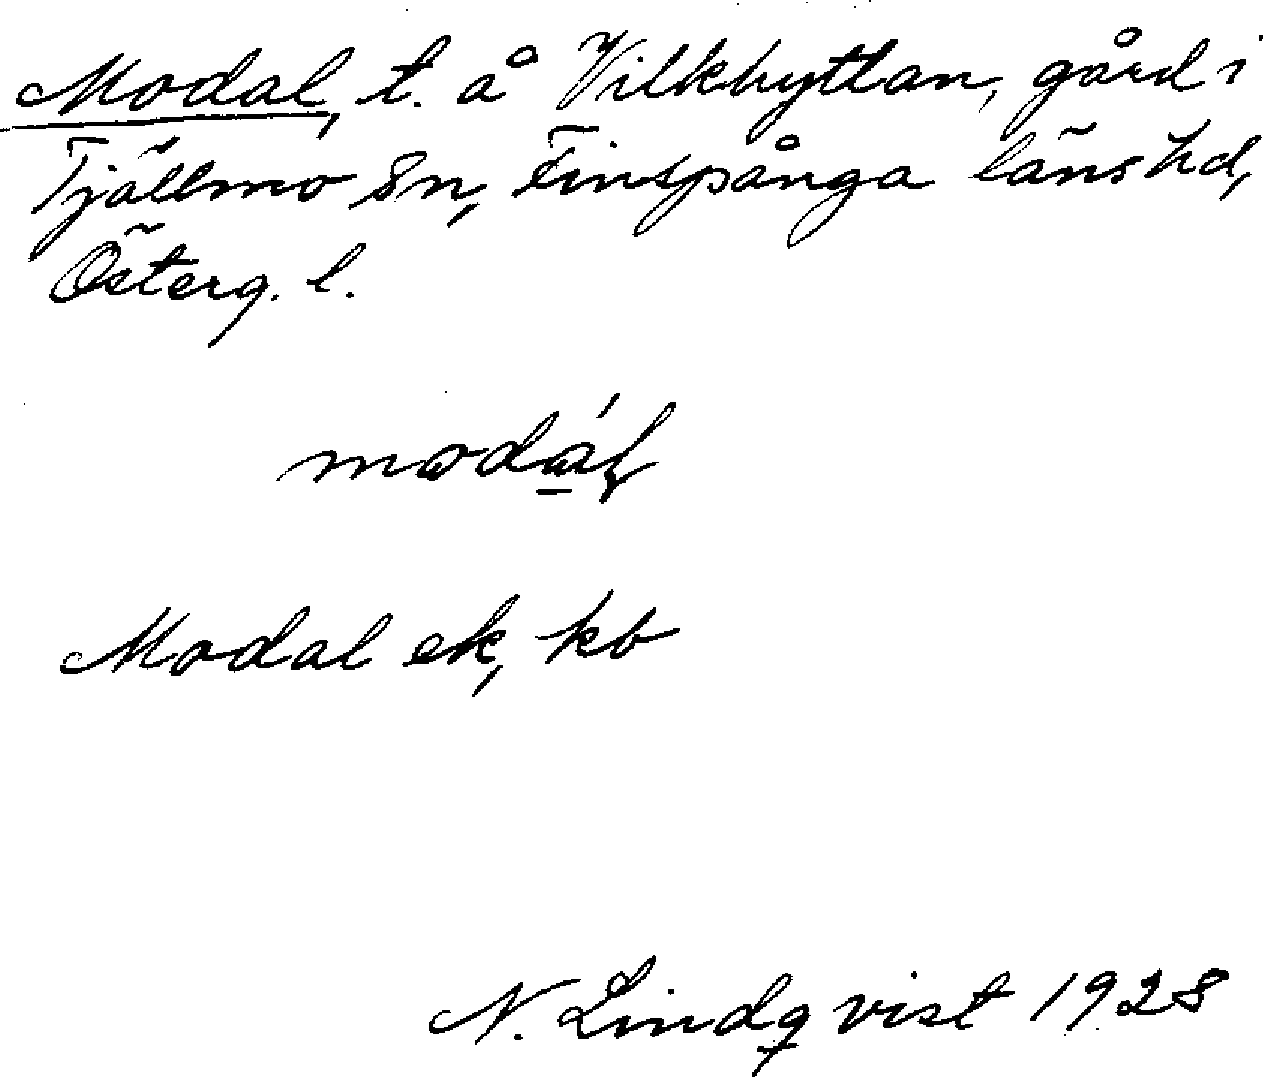 Modal, t. å Vilkhyttan, gård i
Tjällmo Sn, Finspånga läns hd,
Österg. l.
modál
Modal ek, kb
N. Lindqvist 1928